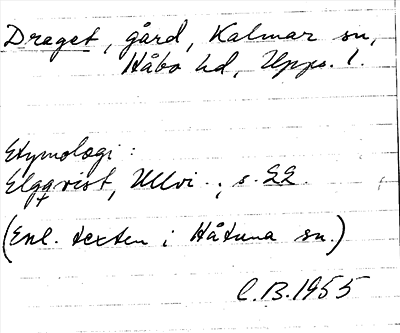 Draget, gård, Kalmar sn,
Håbo hd, Upps. l.
Etymologi:
Elgqvist, Ullvi., s. 22.
(Enl. texten i Håtuna sn.)
C.B. 1955